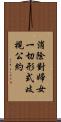 消除對婦女
一切形式歧
視公約